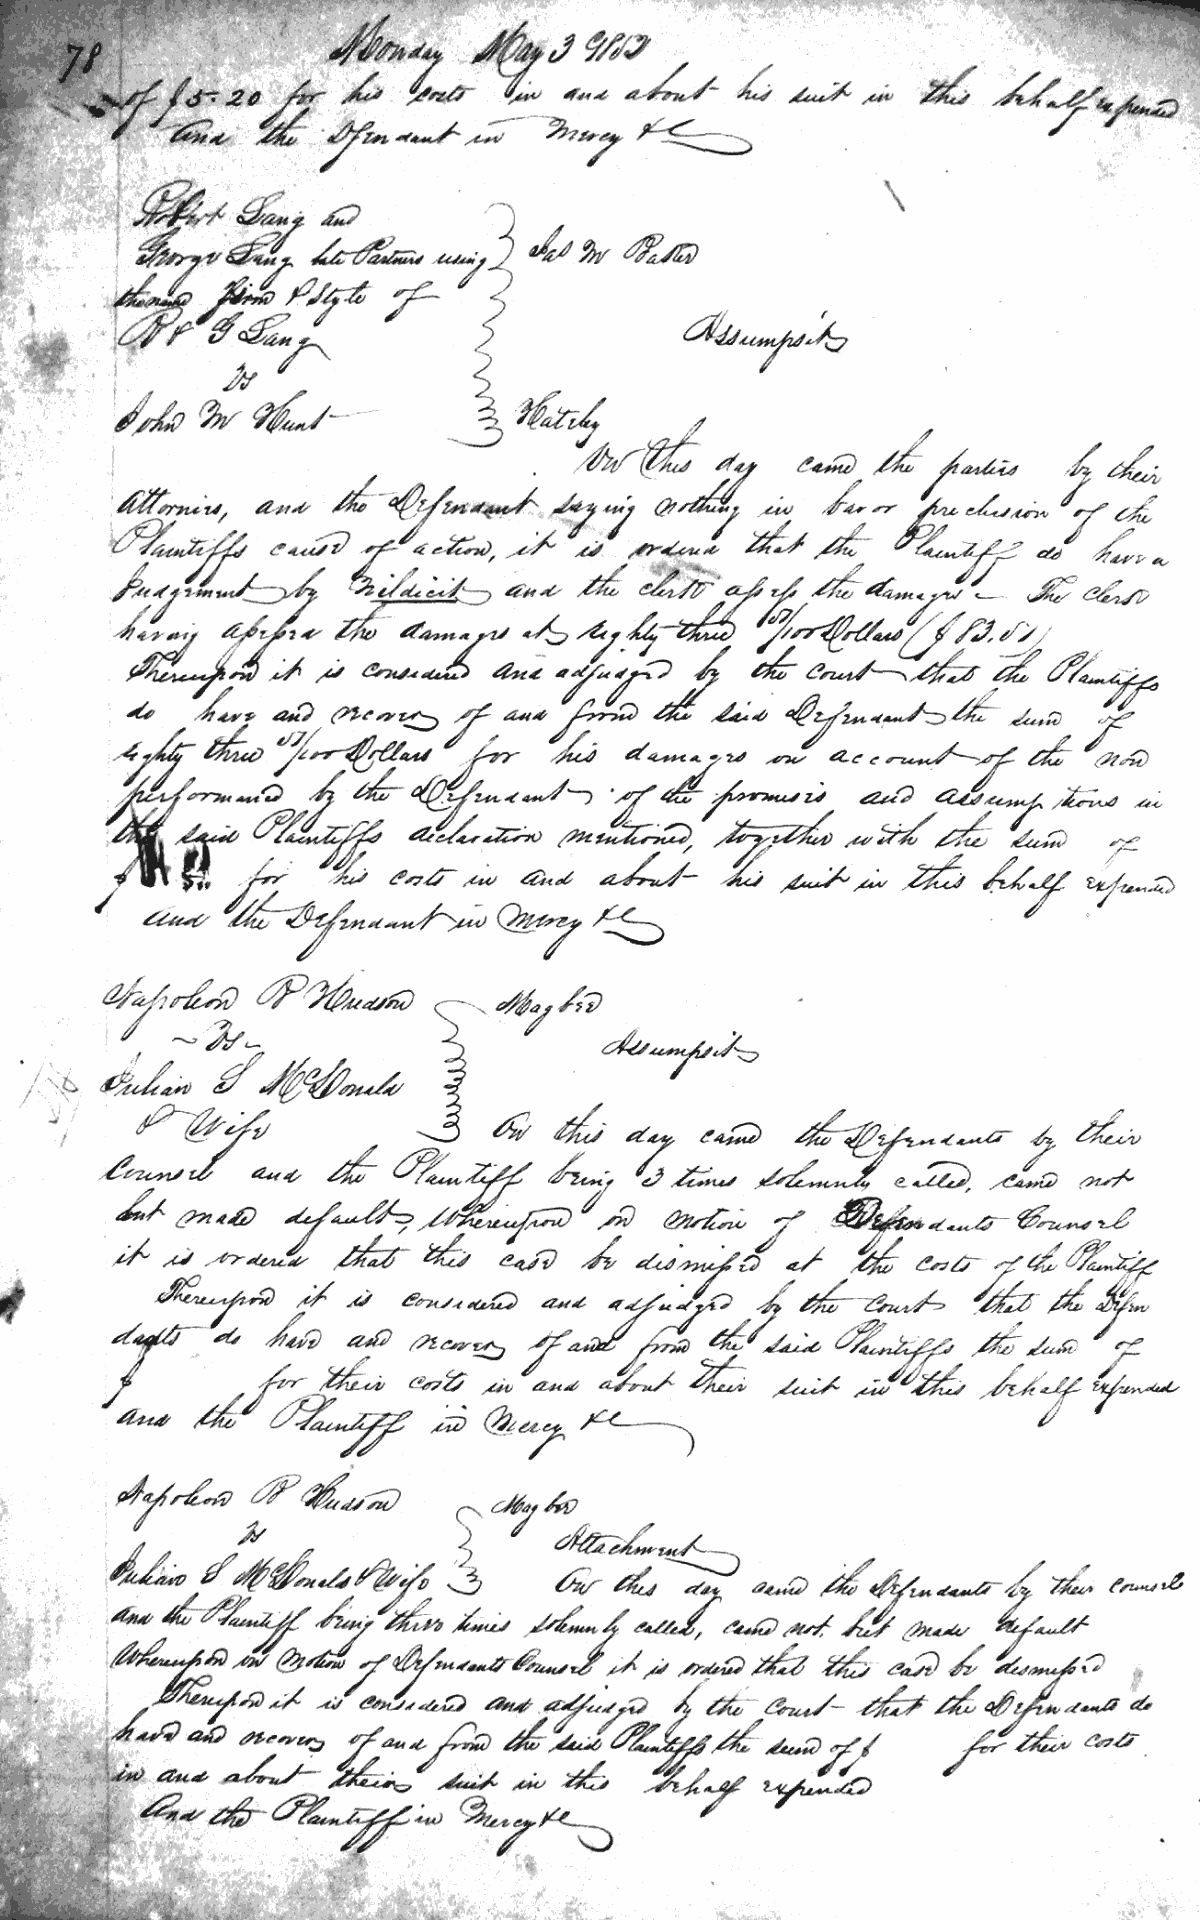 78
Monday May 3 1852
of $5.20 for his costs in and about his suit in this behalf expended
And the Defendant in Mercy &c
Robert Lang and
George Lang late Partners using
the name firm & Style of
R & G Lang
vs
John M Hunt
Jas M Baker
Assumpsit
Hateley
On this day came the parties by their
attornies, and the Defendant saying nothing in bar or preclusion of the
Plaintiffs cause of action, it is ordered that the Plaintiff do have a
Judgement by Nildicit and the clerk assess the damages - The clerk
having assessed the damages at Eighty three /100 Dollars ($83.
Thereupon it is considered and adjudged by the court that the Plaintiffs
do have and recover of and from the said Defendant the sum of
Eighty three /100 Dollars for his damages on account of the non
performance by the Defendant of the promises and assumptions in
the said Plaintiffs declaration mentioned, together with the sum of
$ for his costs in and about his suit in this behalf expended
and the Defendant in Mercy &c
Napoleon B Hudson
- vs -
Julian S McDonald
& Wife
Magbee
Assumpsit
On this day came the Defendants by their
Counsel and the Plaintiff being 3 times solemnly called, came not
but made default, Whereupon on motion of Defendants Counsel
it is ordered that this case be dismissed at the costs of the Plaintiff
Thereupon it is considered and adjudged by the Court that the Defen
dants do have and recover of and from the said Plaintiffs the sum of
$ for their costs in and about their suit in this behalf expended
and the Plaintiff in Mercy &c
Napoleon B Hudson
vs
Julian S McDonald & Wife
Magbee
Attachment
On this day came the Defendants by their counsel
and the Plaintiff being three times solemnly called, came not, but made default
Whereupon on motion of Defendants Counsel it is ordered that this case be dismissed
Thereupon it is considered and adjudged by the Court that the Defendants do
have and recover of and from the said Plaintiffs the sum of $ for their costs
in and about their suit in this behalf expended
And the Plaintiff in Mercy &c